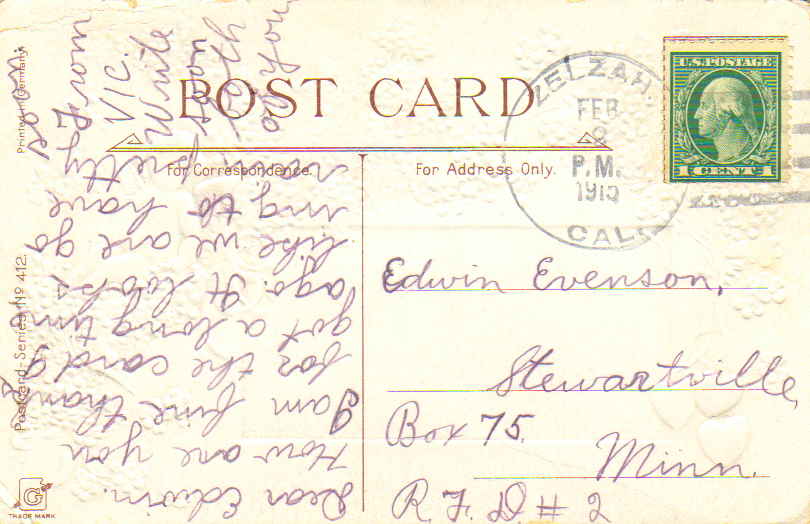 POST CARD
For Correspondence.
For Address Only.
Printed in Germany.
Postcard-Series № 412.
TRADE MARK
G
ZELZAH.
FEB
P.M.
CAL.
U.S. POSTAGE
1 CENT 1
Edwin Evenson,
Stewartville,
Box 75. Minn.
R. F. D # 2
Dear Edwin.
How are you
I am fine thanks
for the card I
got a long time
ago. It looks
like we are go
ing to have
rain pretty
soon.
From
Vic.
Write
soon
both
of you